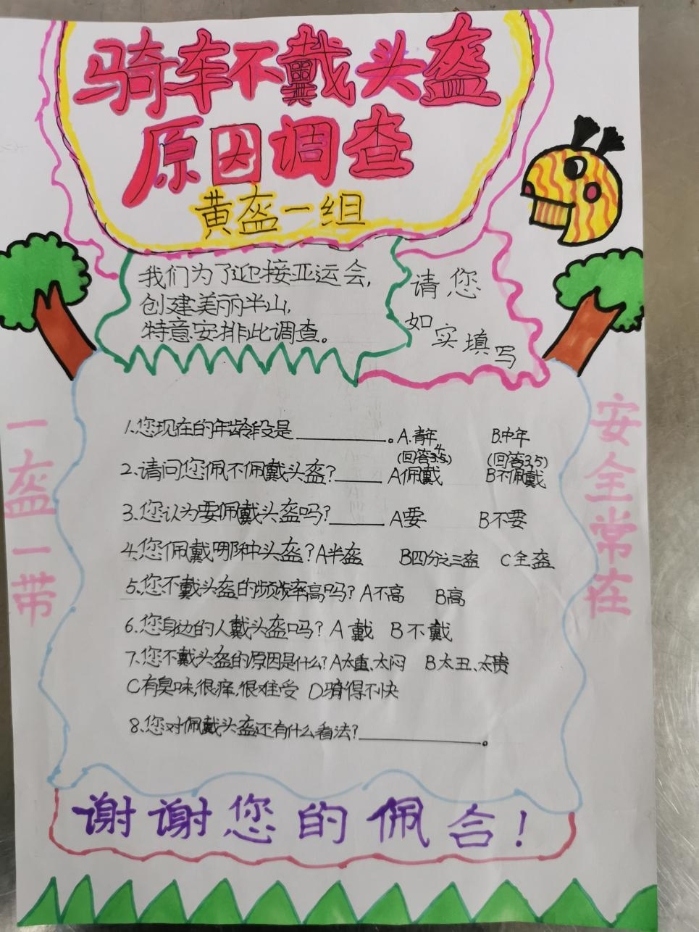 骑车不戴头盔
原因调查
黄盔一组
我们为了迎接亚运会,
创建美丽半山,
特意安排此调查。
请您
如实填写
一盔一带
安全常在
1.您现在的年龄段是________。A.青年 B.中年
2.请问您佩不佩戴头盔?____ A佩戴 B不佩戴
(回答3,5)
3、您认为要佩戴头盔吗?____ A要 B不要
4.您佩戴哪种头盔?A半盔 B四分之三盔 C全盔
5、您不戴头盔的频率高吗?A不高 B高
6.您身边的人戴头盔吗?A戴 B不戴
7.您不戴头盔的原因是什么?A太重、太闷 B太丑、太贵
C有臭味,很痒,很难受 D骑得不快
8.您对佩戴头盔还有什么看法?__________。
谢谢您的佩合!